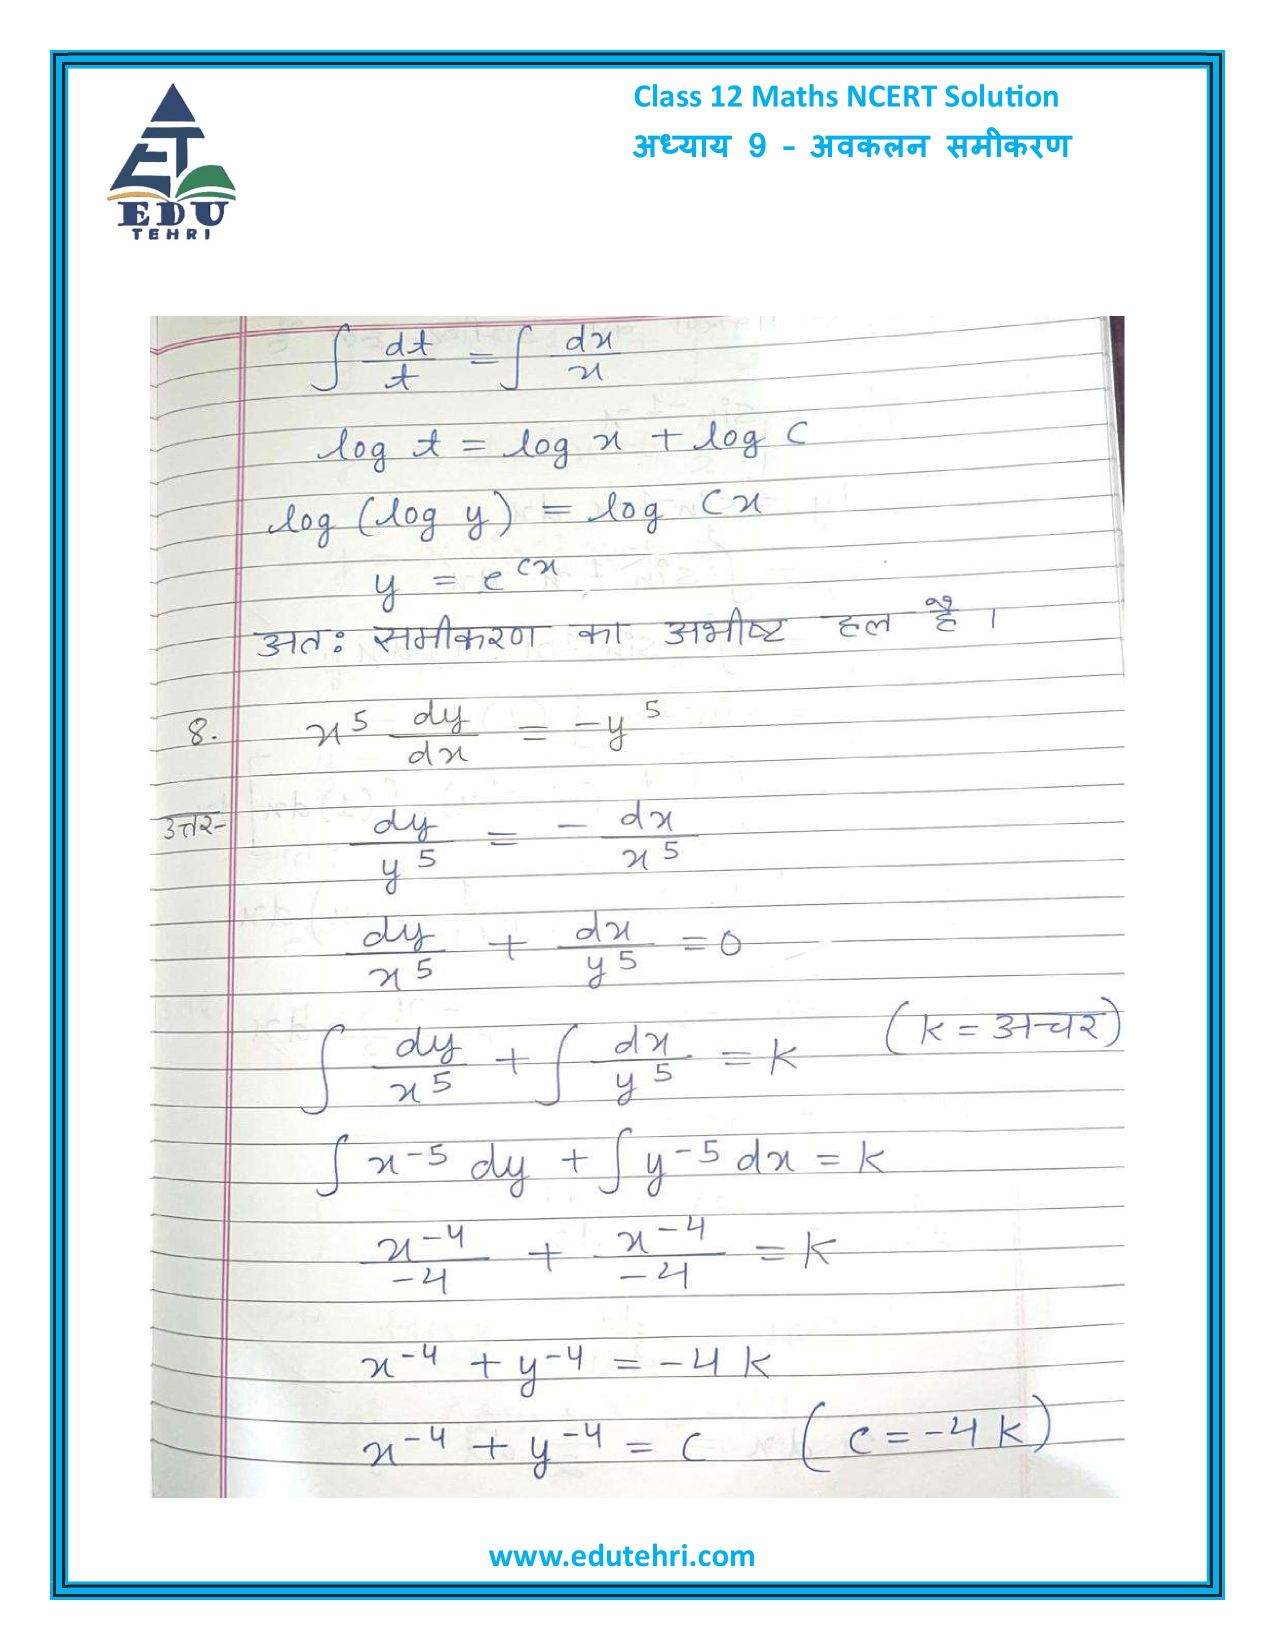 Class 12 Maths NCERT Solution
अध्याय 9 – अवकलन समीकरण
EDU
TEHRI
∫ dt/t = ∫ dx/x
log t = log x + log C
log (log y) = log Cx
y = e^cx
अतः समीकरण का अभीष्ट हल है ।
8. x^5 dy/dx = -y^5
उत्तर- dy/y^5 = - dx/x^5
dy/x^5 + dx/y^5 = 0
∫ dy/x^5 + ∫ dx/y^5 = k (k = अचर)
∫ x^-5 dy + ∫ y^-5 dx = k
x^-4/-4 + x^-4/-4 = k
x^-4 + y^-4 = -4 k
x^-4 + y^-4 = c (c = -4 k)
www.edutehri.com